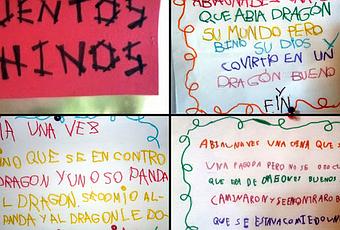 UENTOS
HINOS
QUE ABIA DRAGÓN
SU MUNDO PERO
BINO SU DIOS Y
COVIRTIO EN UN
DRAGÓN BUENO
Y
FIN
A UNA VEZ
INO QUE SE EN CONTRO
DRAGON Y UN OSO PANDA
L DRAGON. SE COMIO AL
PANDA Y AL DRAGON LE DO
ABIA UNA VEZ UNA CHINA QUE S
UNA PAGODA PERO NO SE
QUE ERA DE DRAGONES BUENOS
CAMINARON Y SE ENCONTRARO
QUE SE ESTAVA COMIEDO UN